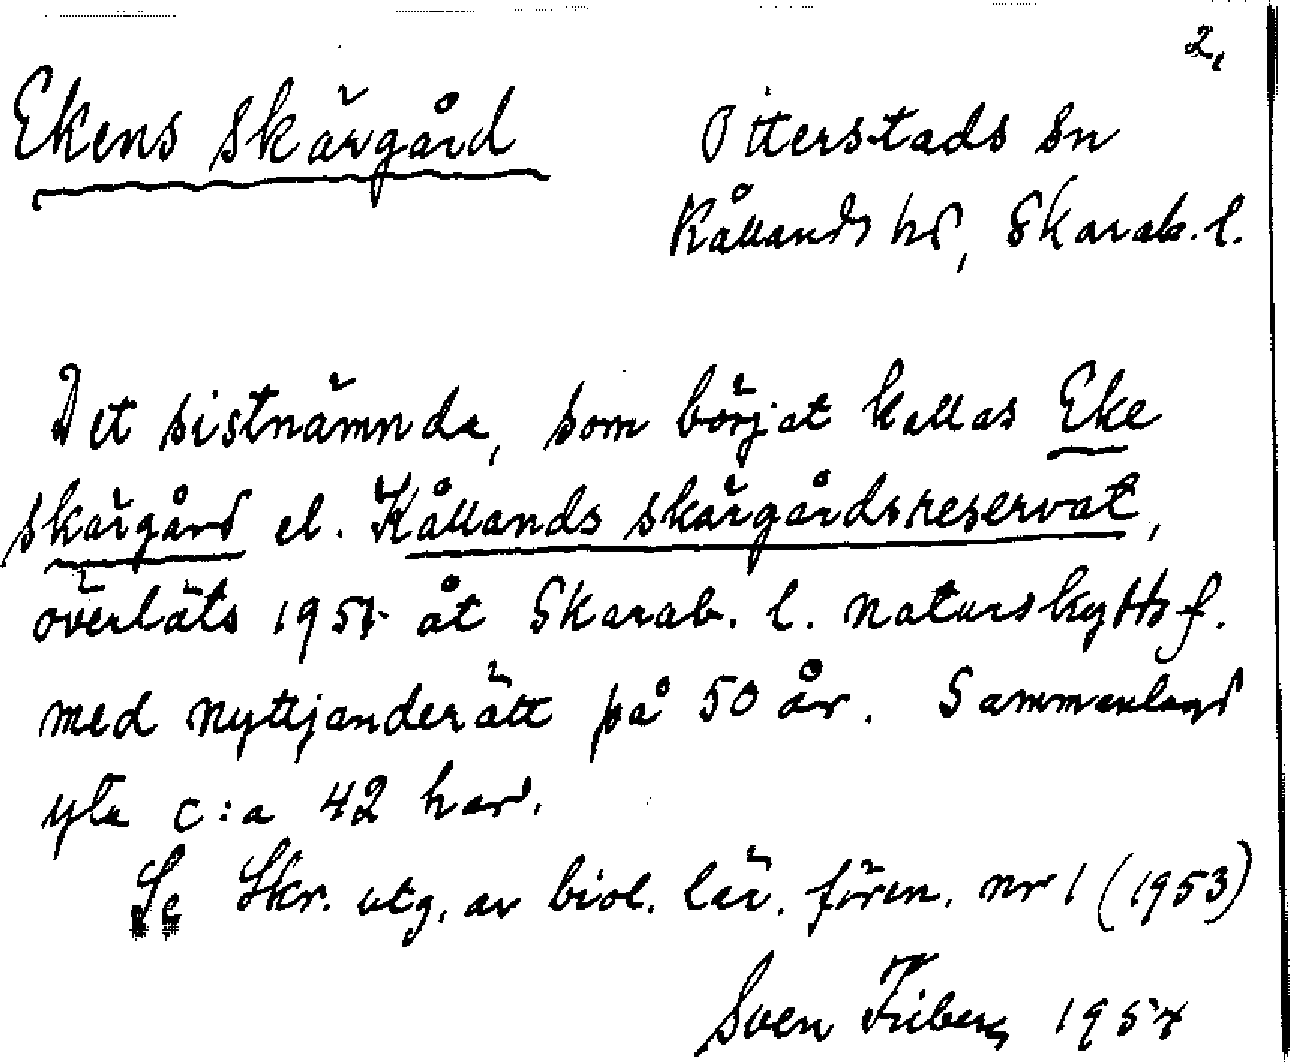 2,
Ekens skärgård
Otterstads sn
Kållands hd, Skarab. l.
Det sistnämnda, som börjat kallas Eke
skärgård el. Kållands skärgårdsreservat,
överläts åt Skarab. l. naturskyttsf.
med nyttjanderätt på 50 år. Sammanlagd
yta c:a 42 har.
Se Skr. utg. av biol. lär. fören. nr 1 (1953)
Sven Friberg 1954